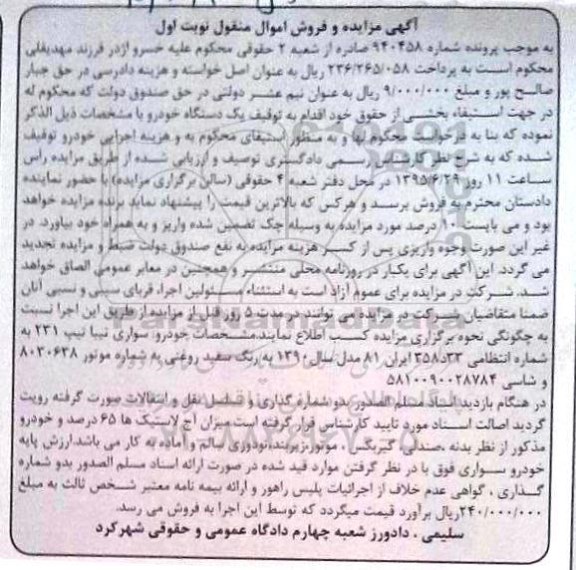 آگهی مزایده و فروش اموال منقول نوبت اول
به موجب پرونده شماره ۹۴۰۴۵۸ صادره از شعبه ۲ حقوقی محکوم علیه خسرو اژدر فرزند مهدیقلی
محکوم است به پرداخت ۲۳۶/۲۶۵/۰۵۸ ریال به عنوان اصل خواسته و هزینه دادرسی در حق جبار
صالح پور و مبلغ ۹/۰۰۰/۰۰۰ ریال به عنوان نیم عشر دولتی در حق صندوق دولت که محکوم له
در جهت استیفاء بخشی از حقوق خود اقدام به توقیف یک دستگاه خودرو با مشخصات ذیل الذکر
نموده که بنا به درخواست محکوم لها و به منظور استیفای محکوم به و هزینه اجرایی خودرو توقیف
شده که به شرح نظر کارشناس رسمی دادگستری توصیف و ارزیابی شده از طریق مزایده راس
ساعت ۱۱ روز ۱۳۹۵/۶/۲۹ در محل دفتر شعبه ۴ حقوقی (سالن برگزاری مزایده) با حضور نماینده
دادستان محترم به فروش برسد و هرکس که بالاترین قیمت را پیشنهاد نماید برنده مزایده خواهد
بود و می بایست ۱۰ درصد مورد مزایده به وسیله چک تضمین شده واریز و به همراه خود بیاورد. در
غیر این صورت وجوه واریزی پس از کسر هزینه مزایده به نفع صندوق دولت ضبط و مزایده تجدید
می گردد. این آگهی برای یکبار در روزنامه محلی منتشر و همچنین در معابر عمومی الصاق خواهد
شد. شرکت در مزایده برای عموم آزاد است به استثناء مسئولین اجرا، قربای سببی و نسبی آنان
ضمنا متقاضیان شرکت در مزایده می توانند در مدت ۵ روز قبل از مزایده از طریق این اجرا نسبت
به چگونگی نحوه برگزاری مزایده کسب اطلاع نمایند.مشخصات خودرو: سواری تیبا تیپ ۲۳۱ به
شماره انتظامی ۳۳د۳۵۸ ایران ۸۱ مدل سال ۱۳۹۰ به رنگ سفید روغنی به شماره موتور ۸۰۳۰۶۳۸
و شاسی ۵۸۱۰۰۹۰۰۲۸۷۸۴
در هنگام بازدید اسناد مسلم الصدور بدو شماره گذاری و تسلسل نقل و انتقالات صورت گرفته رویت
گردید اصالت اسناد مورد تایید کارشناس قرار گرفته است.میزان آج لاستیک ها ۶۵ درصد و خودرو
مذکور از نظر بدنه ،صندلی، گیربکس ، موتور،زیربند،تودوزی سالم و آماده به کار می باشد.ارزش پایه
خودرو سواری فوق با در نظر گرفتن موارد قید شده در صورت ارائه اسناد مسلم الصدور بدو شماره
گذاری ، گواهی عدم خلاف از اجرائیات پلیس راهور و ارائه بیمه نامه معتبر شخص ثالث به مبلغ
۲۴۰/۰۰۰/۰۰۰ریال برآورد قیمت میگردد که توسط این اجرا به فروش می رسد.
سلیمی ، دادورز شعبه چهارم دادگاه عمومی و حقوقی شهرکرد